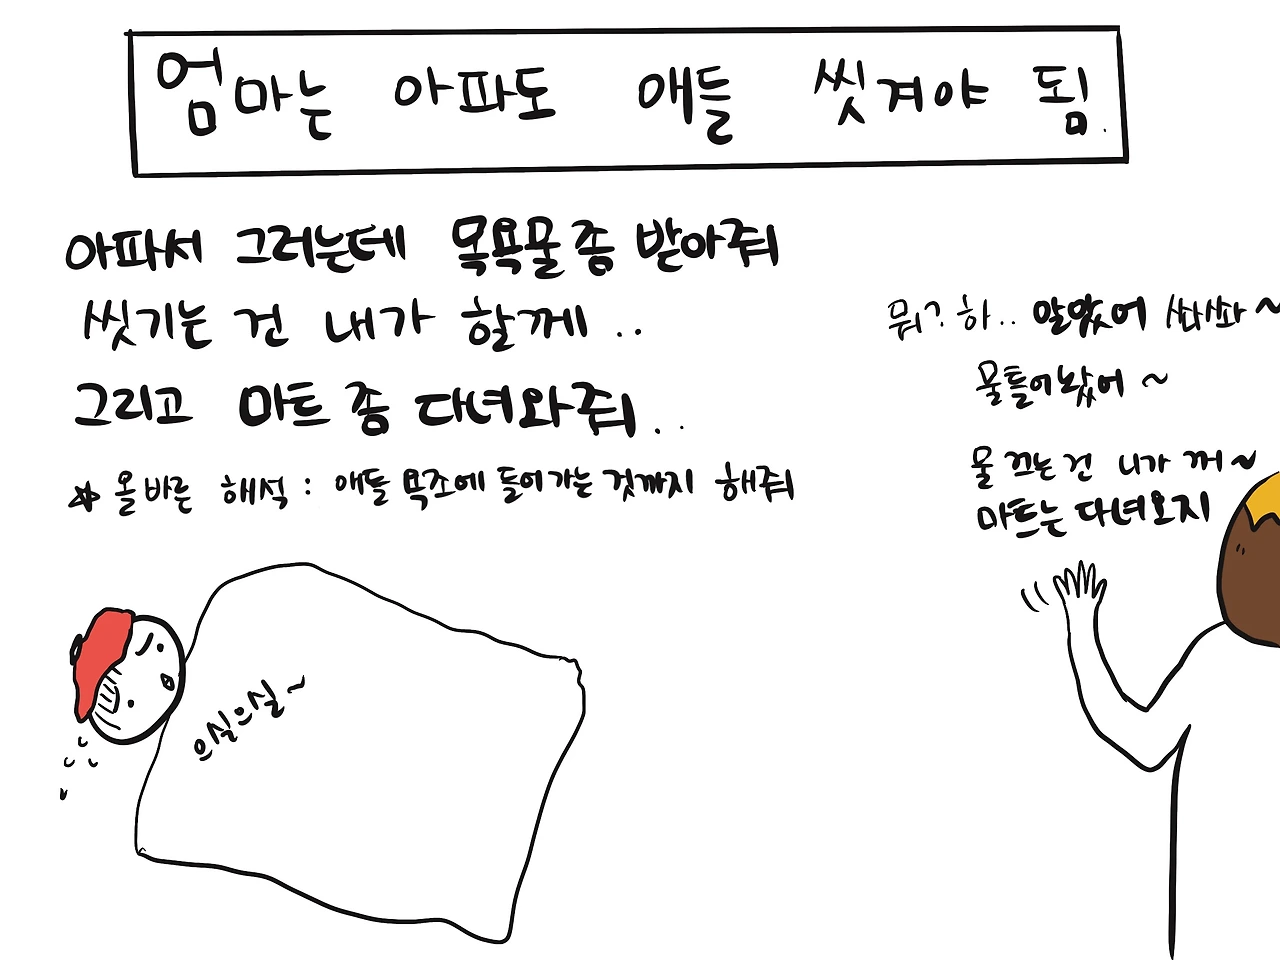 엄마는 아파도 애들 씻겨야 됨.
아파서 그러는데 목욕물 좀 받아줘
씻기는 건 내가 할께..
그리고 마트 좀 다녀와줘..
☆ 올바른 해석 : 애들 욕조에 들어가는 것까지 해줘
뭐? 하.. 알았어 쏴쏴~
물틀어놨어~
물 끄는건 니가 꺼~
마트는 다녀오지
으실으실~